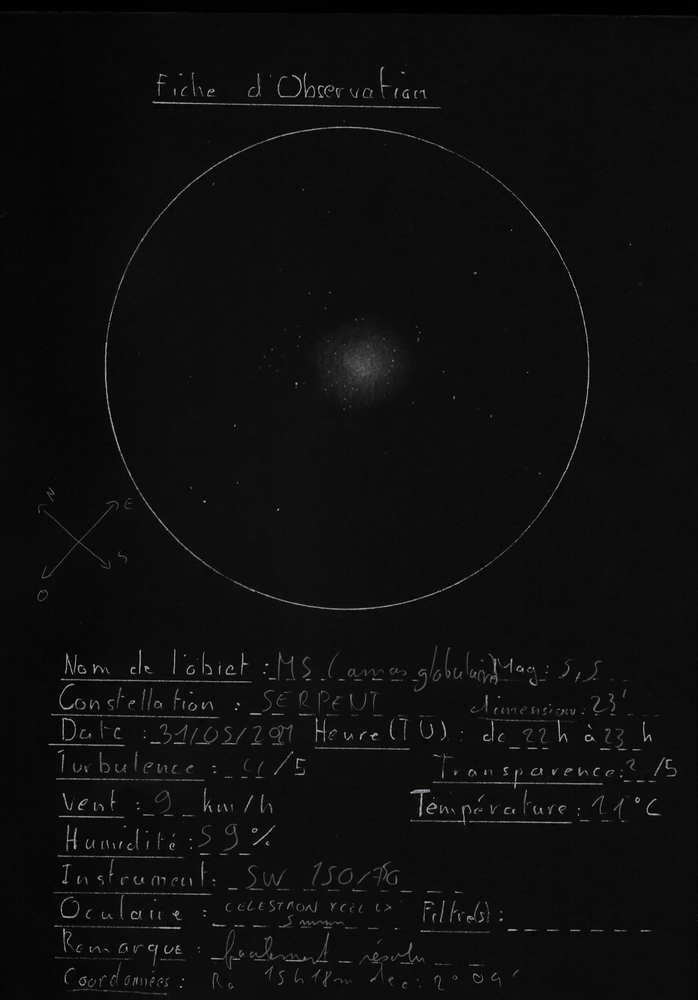 Fiche d'Observation
N
E
S
O
Nom de l'objet : M5 (amas globulaire) Mag : 5,5
Constellation : SERPENT dimension : 23'
Date : 31/05/2021 Heure (TU) : de 22 h à 23 h
Turbulence : 4/5 Transparence : 2/5
Vent : 9 km/h Température : 11°C
Humidité : 59%
Instrument : SW 150/750
Oculaire : CELESTRON XCEL LX Filtre(s) :
5mm
Remarque : facilement résolu
Coordonnées : Ra 15h18m dec : 2° 04'